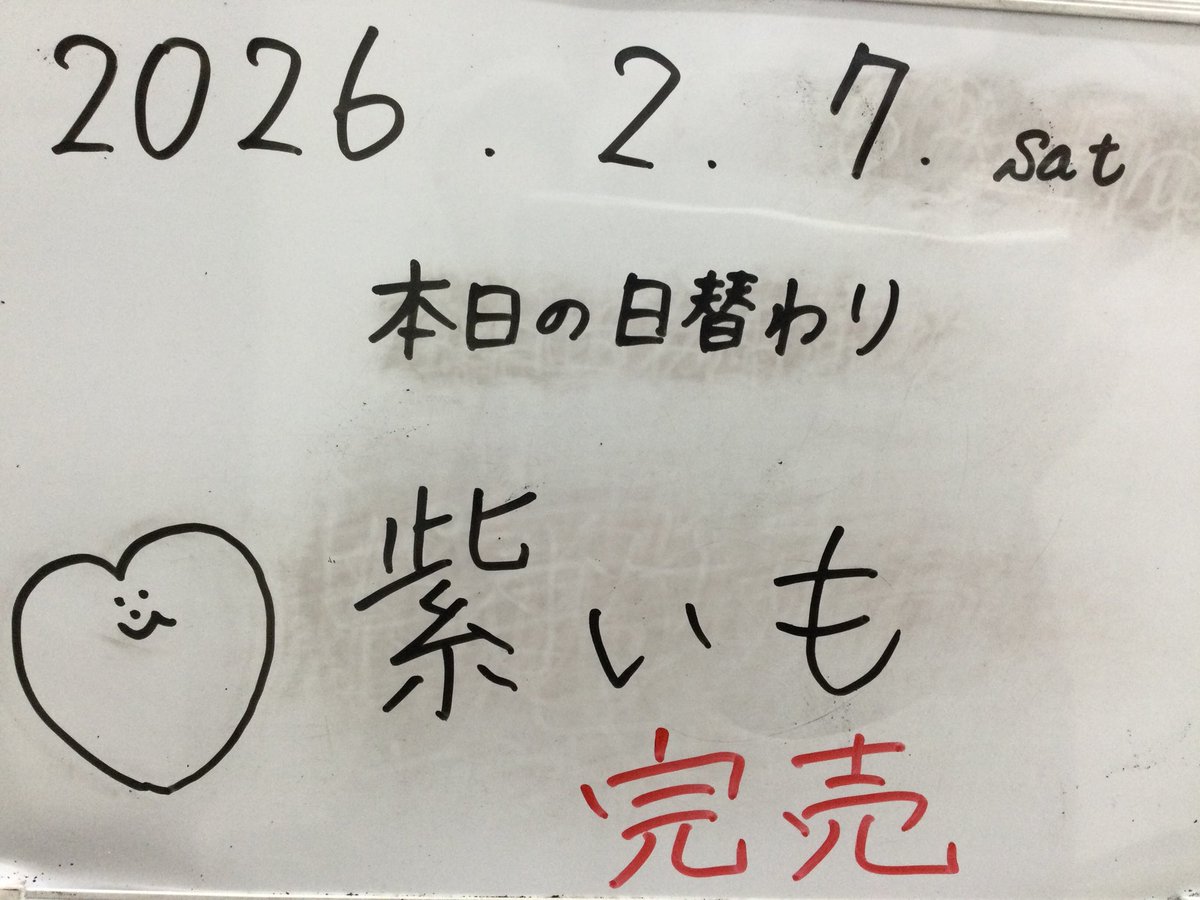 2026.2.7.sat
本日の日替わり
紫いも
完売